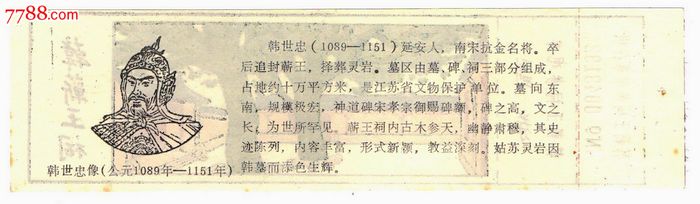 7788.com
韩世忠(1089—1151)延安人,南宋抗金名将。卒
后追封蕲王,择葬灵岩。墓区由墓、碑、祠三部分组成,
占地约十万平方米,是江苏省文物保护单位。墓向东
南,规模极宏,神道碑宋孝宗御赐碑额,碑之高,文之
长,为世所罕见。蕲王祠内古木参天,幽静肃穆,其史
迹陈列,内容丰富,形式新颖,教益深刻。姑苏灵岩因
韩墓而添色生辉。
韩世忠像(公元1089年—1151年)